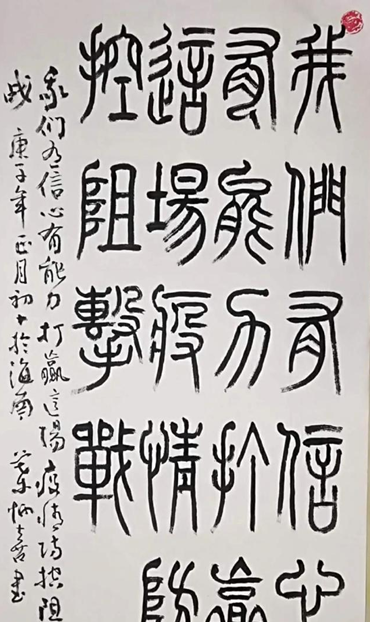 我們有信心
有能力打贏
這場疫情防
控阻擊戰
我们有信心有能力打贏这场疫情防控阻
战 庚子年正月初十於海南 書